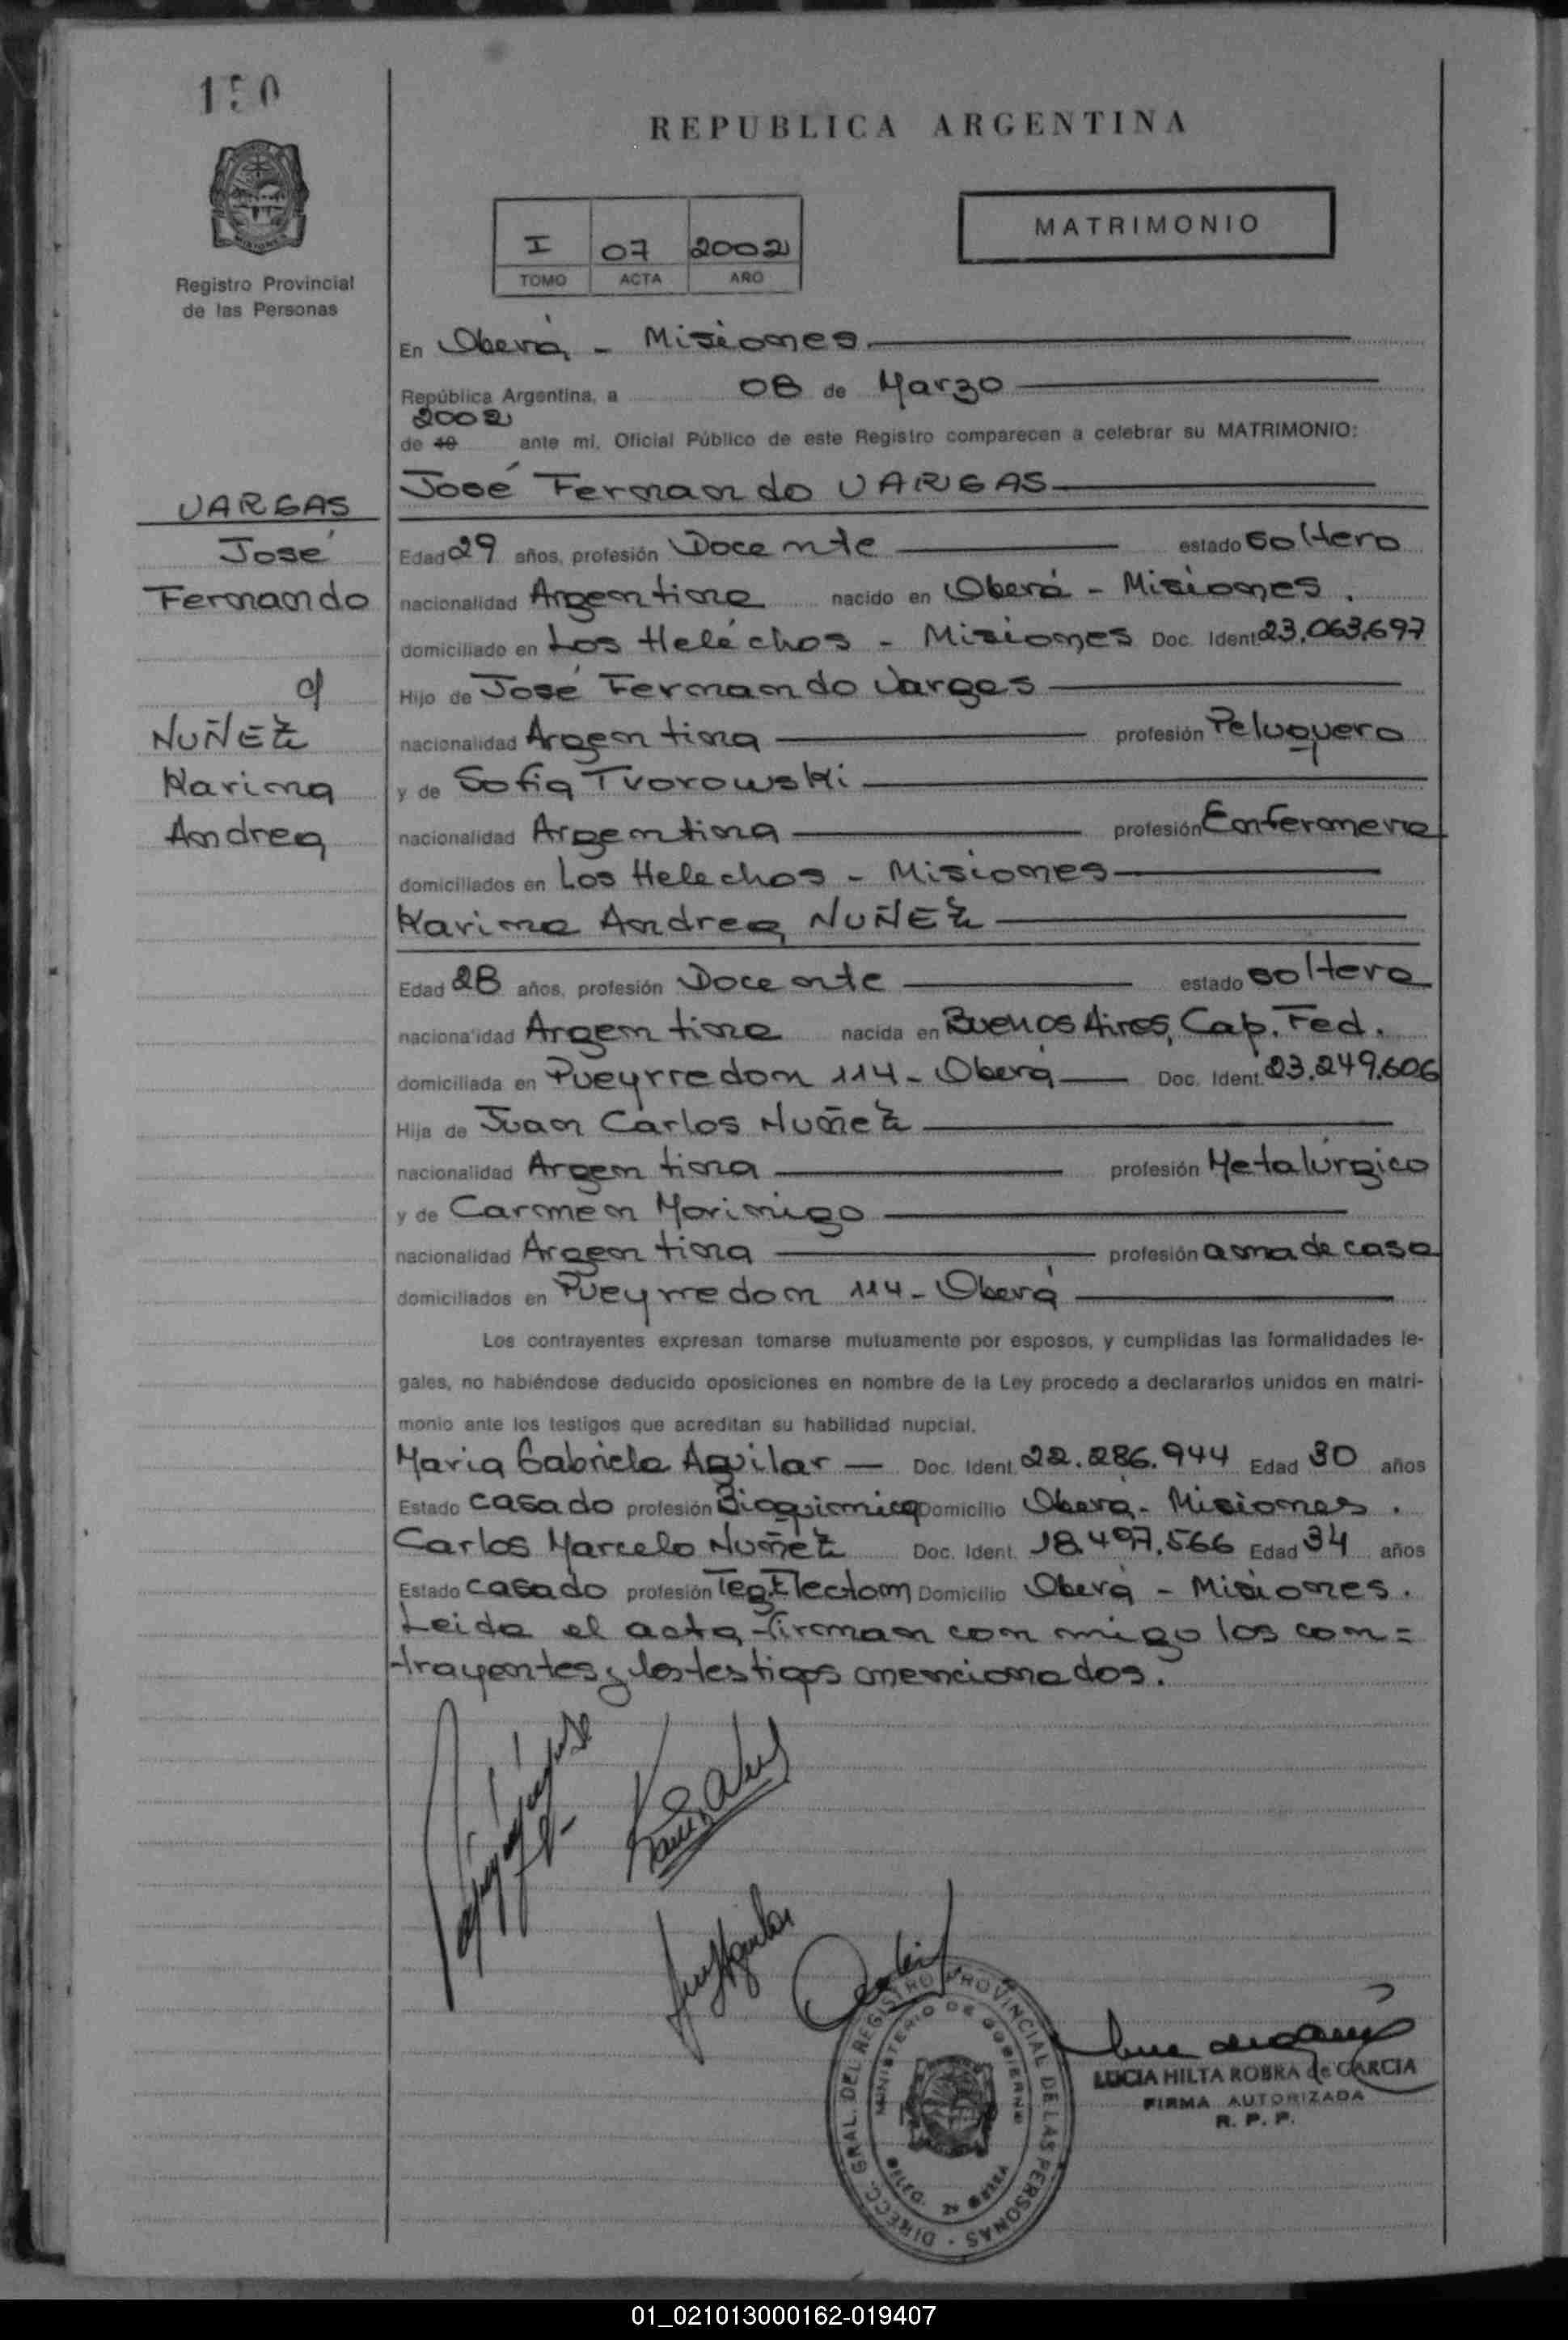 150
REPUBLICA ARGENTINA
MATRIMONIO
I 07 2002
TOMO ACTA AÑO
Registro Provincial
de las Personas
En Oberá - Misiones
República Argentina, a 08 de Marzo
2002
de 19 ante mi, Oficial Público de este Registro comparecen a celebrar su MATRIMONIO:
José Fernando VARGAS
VARGAS
José
Fernando
c/
NUÑEZ
Karina
Andrea
Edad 29 años, profesión Docente estado soltero
nacionalidad Argentina nacido en Oberá - Misiones.
domiciliado en Los Heléchos - Misiones Doc. Ident. 23.063.697
Hijo de José Fernando Vargas
nacionalidad Argentina profesión Peluquero
y de Sofia Tvorowski
nacionalidad Argentina profesión Enfermera
domiciliados en Los Helechos - Misiones
Karina Andrea NUÑEZ
Edad 28 años, profesión Docente estado soltera
nacionalidad Argentina nacida en Buenos Aires, Cap. Fed.
domiciliada en Pueyrredon 114 - Oberá Doc. Ident. 23.249.606
Hija de Juan Carlos Nuñez
nacionalidad Argentina profesión Metalúrgico
y de Carmen Morinigo
nacionalidad Argentina profesión ama de casa
domiciliados en Pueyrredon 114 - Oberá
Los contrayentes expresan tomarse mutuamente por esposos, y cumplidas las formalidades le-
gales, no habiéndose deducido oposiciones en nombre de la Ley procedo a declararlos unidos en matri-
monio ante los testigos que acreditan su habilidad nupcial.
Maria Gabriela Aguilar — Doc. Ident. 22.286.944 Edad 30 años
Estado casado profesión Bioquimica Domicilio Oberá - Misiones.
Carlos Marcelo Nuñez Doc. Ident. 18.497.566 Edad 34 años
Estado casado profesión Domicilio Oberá - Misiones.
Leida el acta, firman con migo los con=
trayentes y los testigos mencionados.
DIRECC. GRAL. DEL REGISTRO PROVINCIAL DE LAS PERSONAS
MINISTERIO DE GOBIERNO
LUCIA HILTA ROBRA de GARCIA
FIRMA AUTORIZADA
R. P. P.
01_021013000162-019407